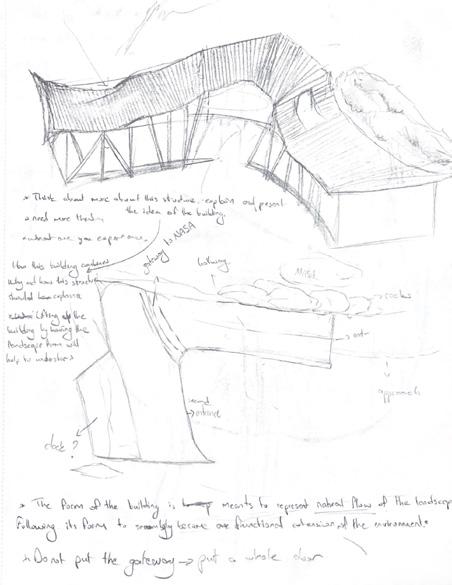 * Think about more about this structure. explain and present
a need more the the idea of the building.
* what are you experience.
gateway to NASA
How this building
Why not have this structure
should
lifting up the
building by having the
landscape form will
help to understand
hallway
rocks
approach
second
dock ?
* The form of the building is meants to represent natural flow of the landscape
Following its form to seamingly become one functional extension of the environment.
* Do not put the gateway → put a whole door